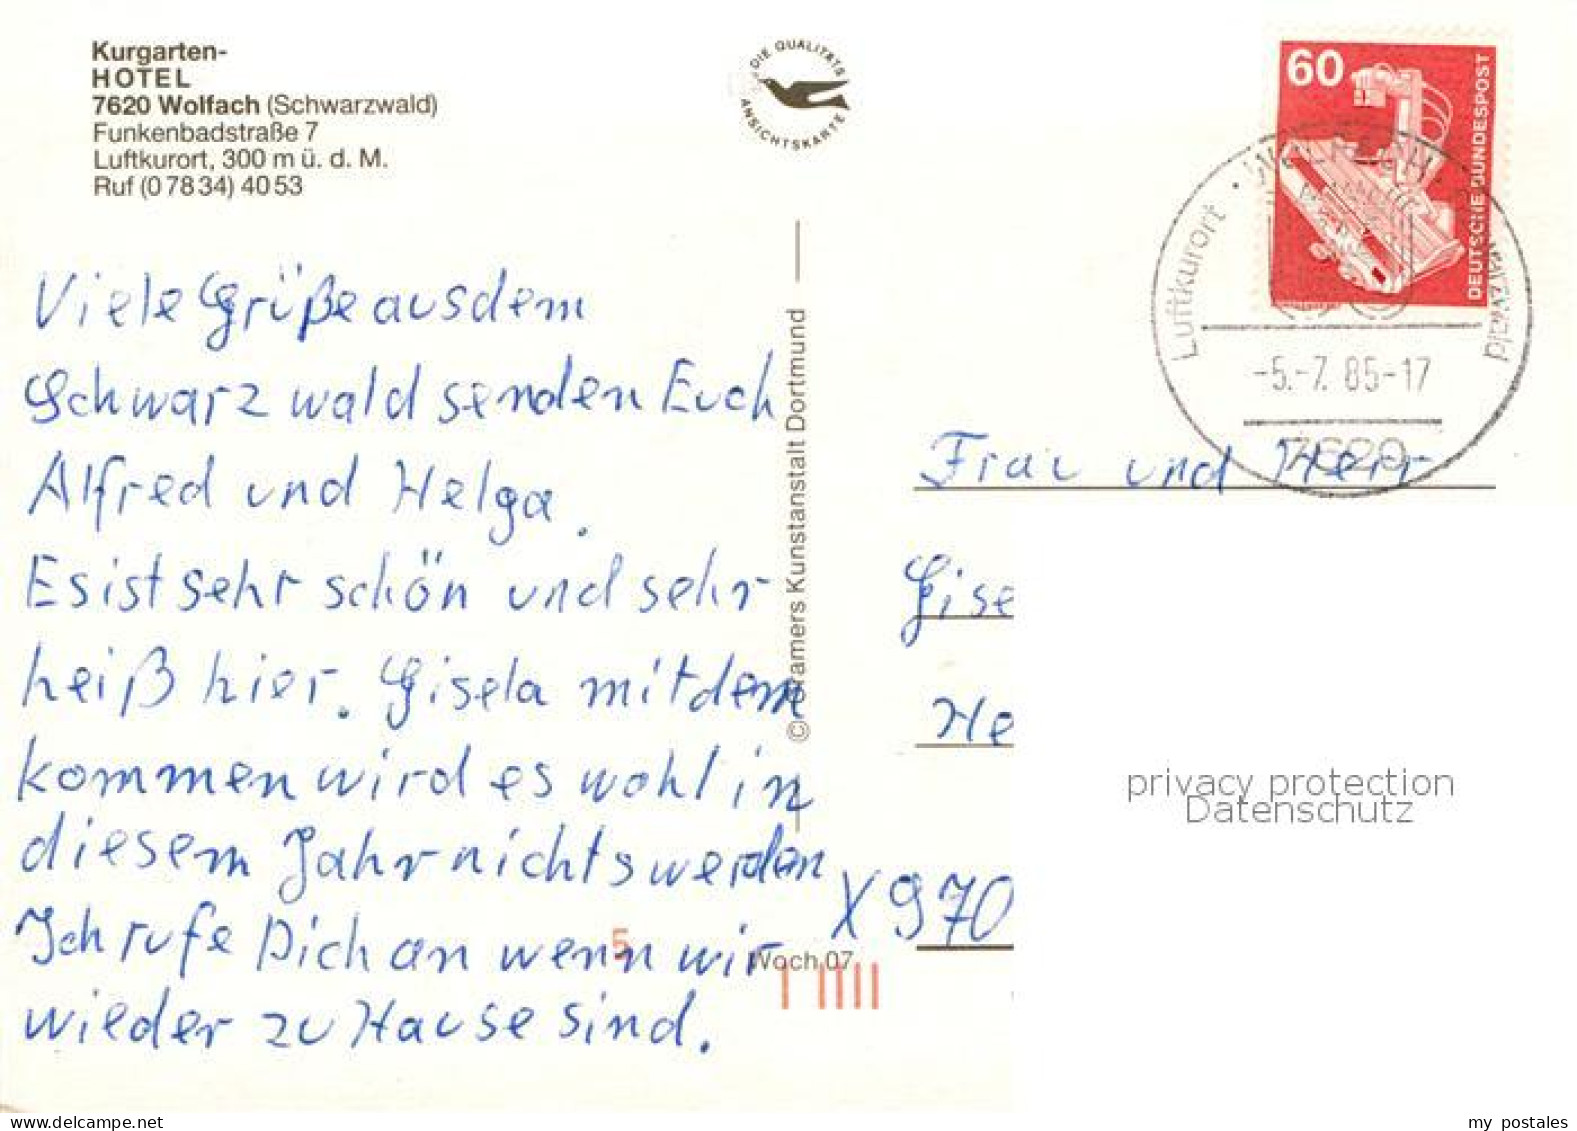 Kurgarten-
HOTEL
7620 Wolfach (Schwarzwald)
Funkenbadstraße 7
Luftkurort, 300 m ü. d. M.
Ruf (0 78 34) 40 53
DIE QUALITÄTS
ANSICHTSKARTE
60
DEUTSCHE BUNDESPOST
Luftkurort · WOLFACH · Schwarzwald
-5.-7. 85-17
7620
Viele Grüße aus dem
Schwarzwald senden Euch
Alfred und Helga.
Es ist sehr schön und sehr
heiß hier. Gisela mit dem
kommen wird es wohl in
diesem Jahr nichts werden
Ich rufe Dich an wenn wir
wieder zu Hause sind.
© Cramers Kunstanstalt Dortmund
5
Woch 07
Frau und Herr
Gise
He
X 970
privacy protection
Datenschutz
www.delcampe.net
my postales